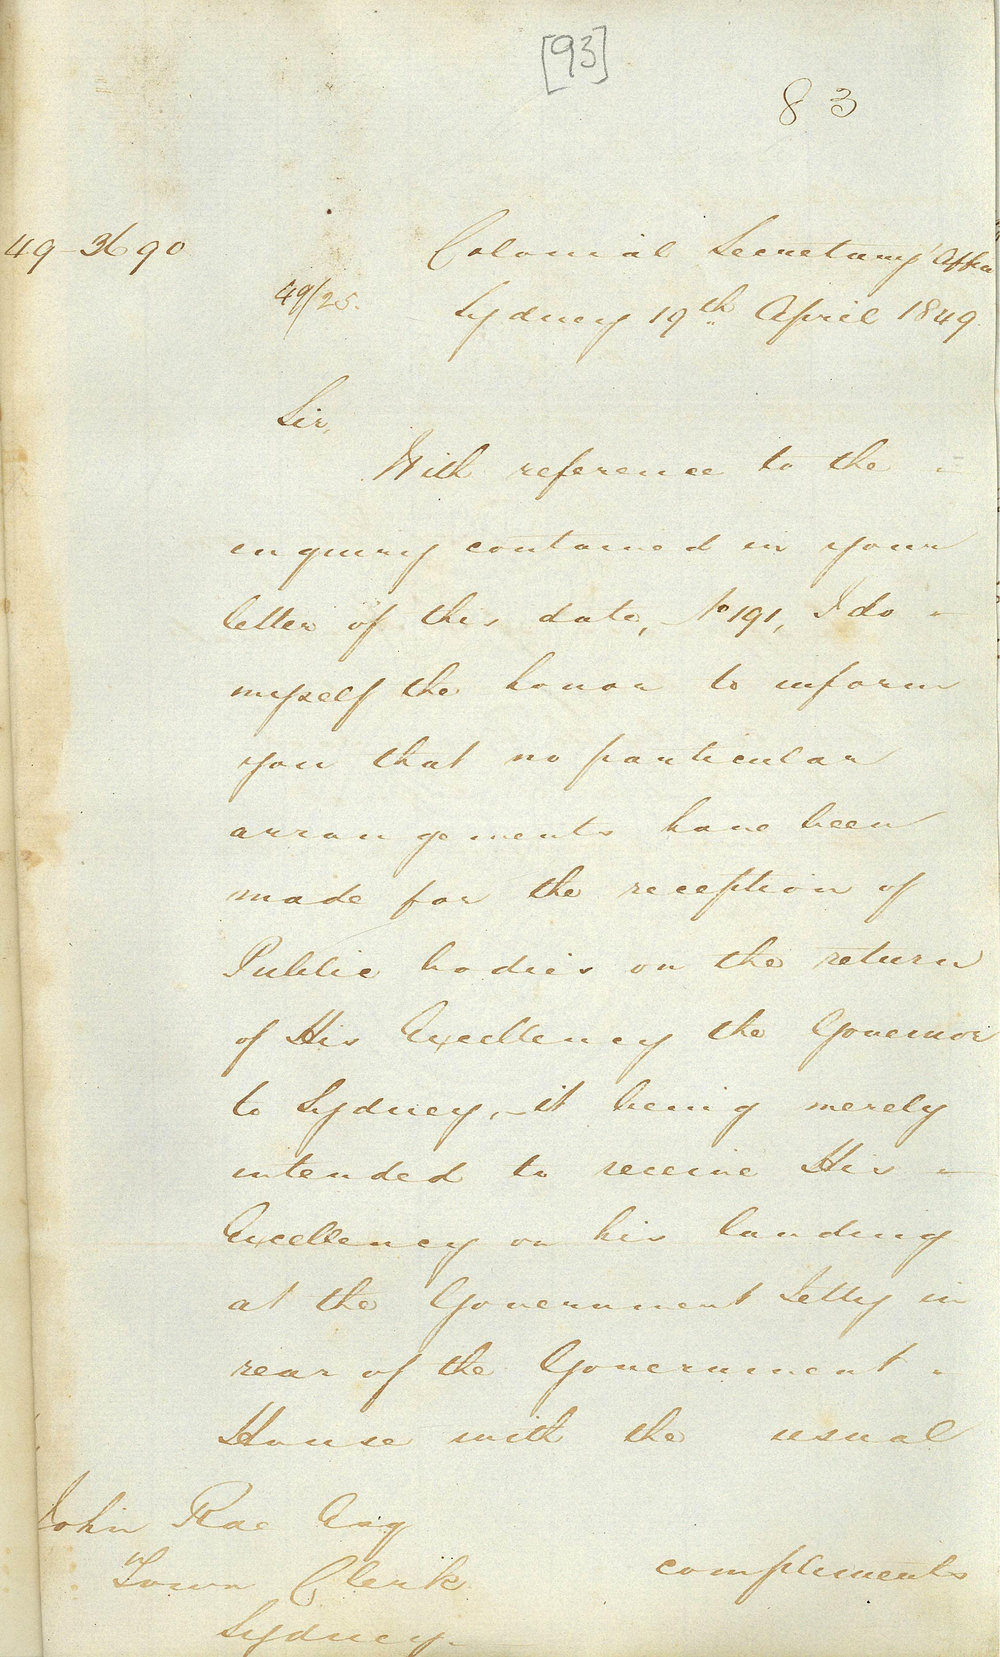 [93]
83
49-3690
Colonial Secretary's Office
49/25.
Sydney 19th April 1849
Sir,
With reference to the
enquiry contained in your
letter of this date, No 191, I do
myself the honor to inform
you that no particular
arrangements have been
made for the reception of
Public bodies on the return
of His Excellency the Governor
to Sydney, - it being merely
intended to receive His
Excellency on his landing
at the Government Jetty in
rear of the Government
House with the usual
John Rae Esq
Town Clerk
compliments
Sydney.